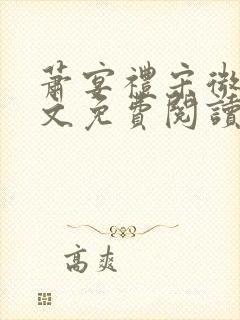 蕭宴禮宋微
文免費閱讀
高爽